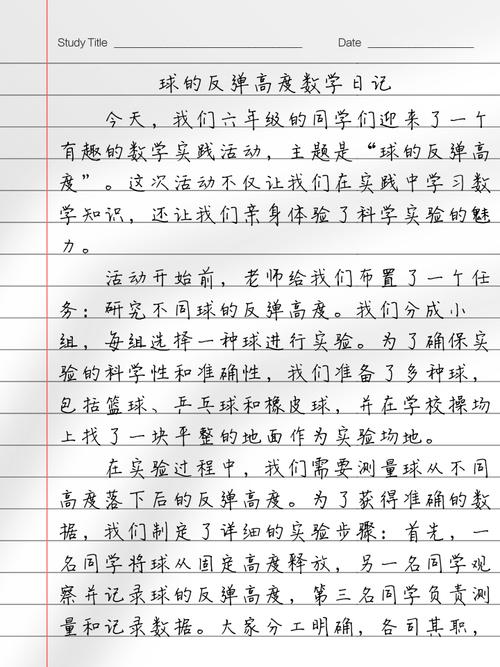 Study Title
Date
球的反弹高度数学日记
今天，我们六年级的同学们迎来了一个
有趣的数学实践活动，主题是“球的反弹高
度”。这次活动不仅让我们在实践中学习数
学知识，还让我们亲身体验了科学实验的魅
力。
活动开始前，老师给我们布置了一个任
务：研究不同球的反弹高度。我们分成小
组，每组选择一种球进行实验。为了确保实
验的科学性和准确性，我们准备了多种球，
包括篮球、乒乓球和橡皮球，并在学校操场
上找了一块平整的地面作为实验场地。
在实验过程中，我们需要测量球从不同
高度落下后的反弹高度。为了获得准确的数
据，我们制定了详细的实验步骤：首先，一
名同学将球从固定高度释放，另一名同学观
察并记录球的反弹高度，第三名同学负责测
量和记录数据。大家分工明确，各司其职，